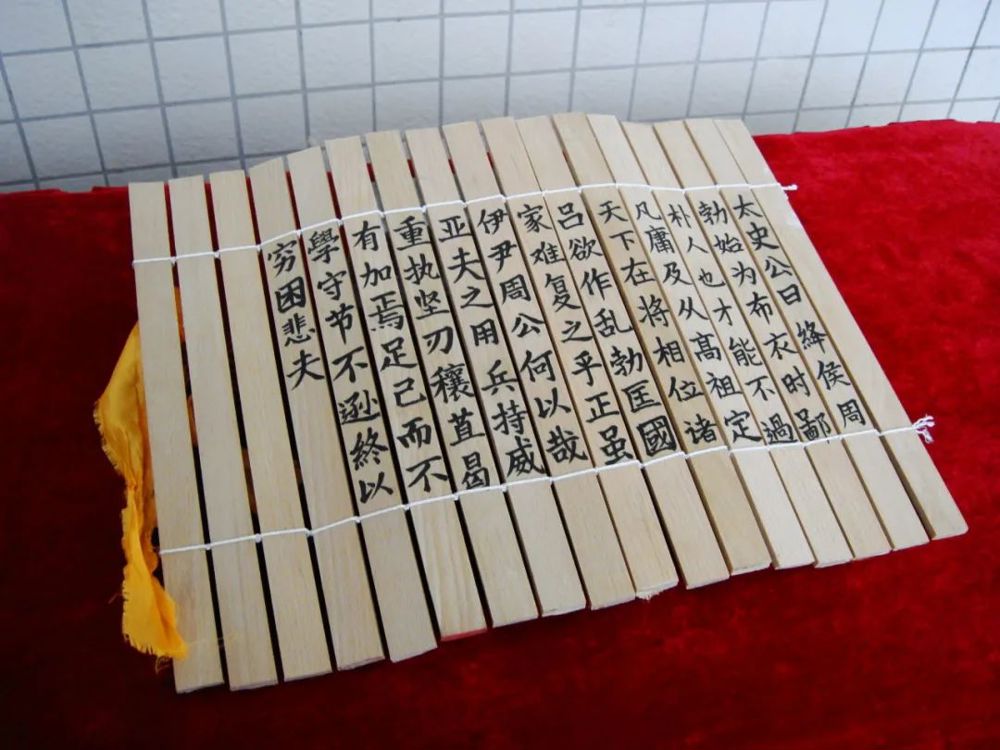 太史公曰 絳侯周
勃始为布衣时鄙
朴人也才能不過
凡庸及从高祖定
天下在将相位诸
吕欲作乱勃匡國
家难复之乎正虽
伊尹周公何以哉
亚夫之用兵持威
重执坚刃穰苴曷
有加焉足己而不
學守节不逊終以
穷困悲夫